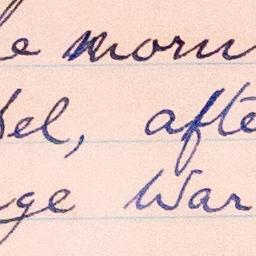 e morn
el, afte
ge War